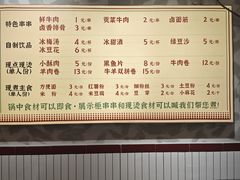 特色串串 鲜牛肉 1元/串 贡菜牛肉 2元/串 卤面筋 2元/串
卤香排骨 3元/串
自制饮品 冰梅汤 4元/杯 冰甜酒 5元/杯 绿豆沙 5元/杯
冰豆花 6元/杯
现点现烫 小酥肉 5元/份 黑鱼片 8元/份 牛肉卷 12元/份
(单人份) 羊肉卷 13元/份 牛羊双拼卷 15元/份
现煮主食 方便面 3元/份 红薯粉 3元/份 土豆粉 4元/份
(单人份) 米粉 4元/份 小麻花 2元/个
锅中食材可以即食·展示柜串串和现烫食材可以喊我们帮您煮!